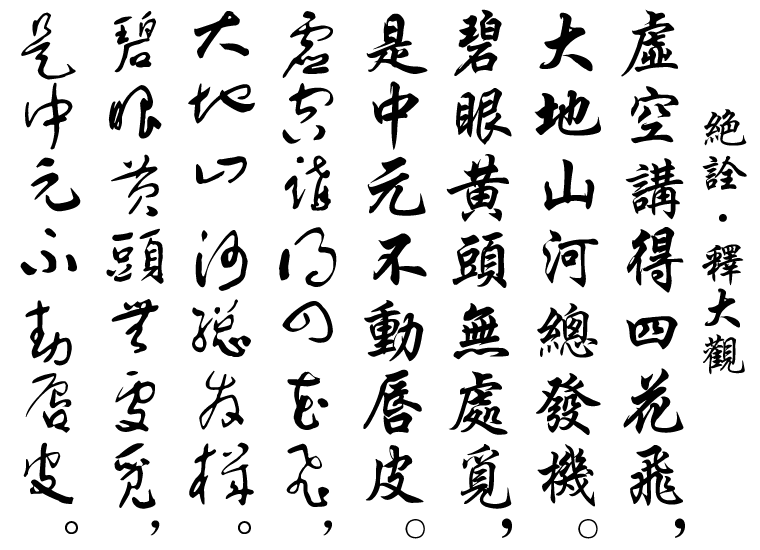 絕詮・釋大觀
虛空講得四花飛，
大地山河總發機。
碧眼黃頭無處覓，
是中元不動唇皮。
虛空講得四花飛，
大地山河總發機。
碧眼黃頭無處覓，
是中元不動唇皮。